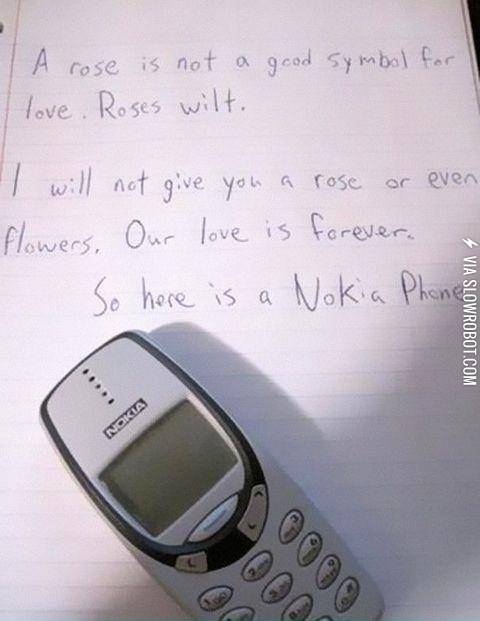 A rose is not a good symbol for
love. Roses wilt.
I will not give you a rose or even
flowers. Our love is forever.
So here is a Nokia Phone
NOKIA
VIA SLOWROBOT.COM